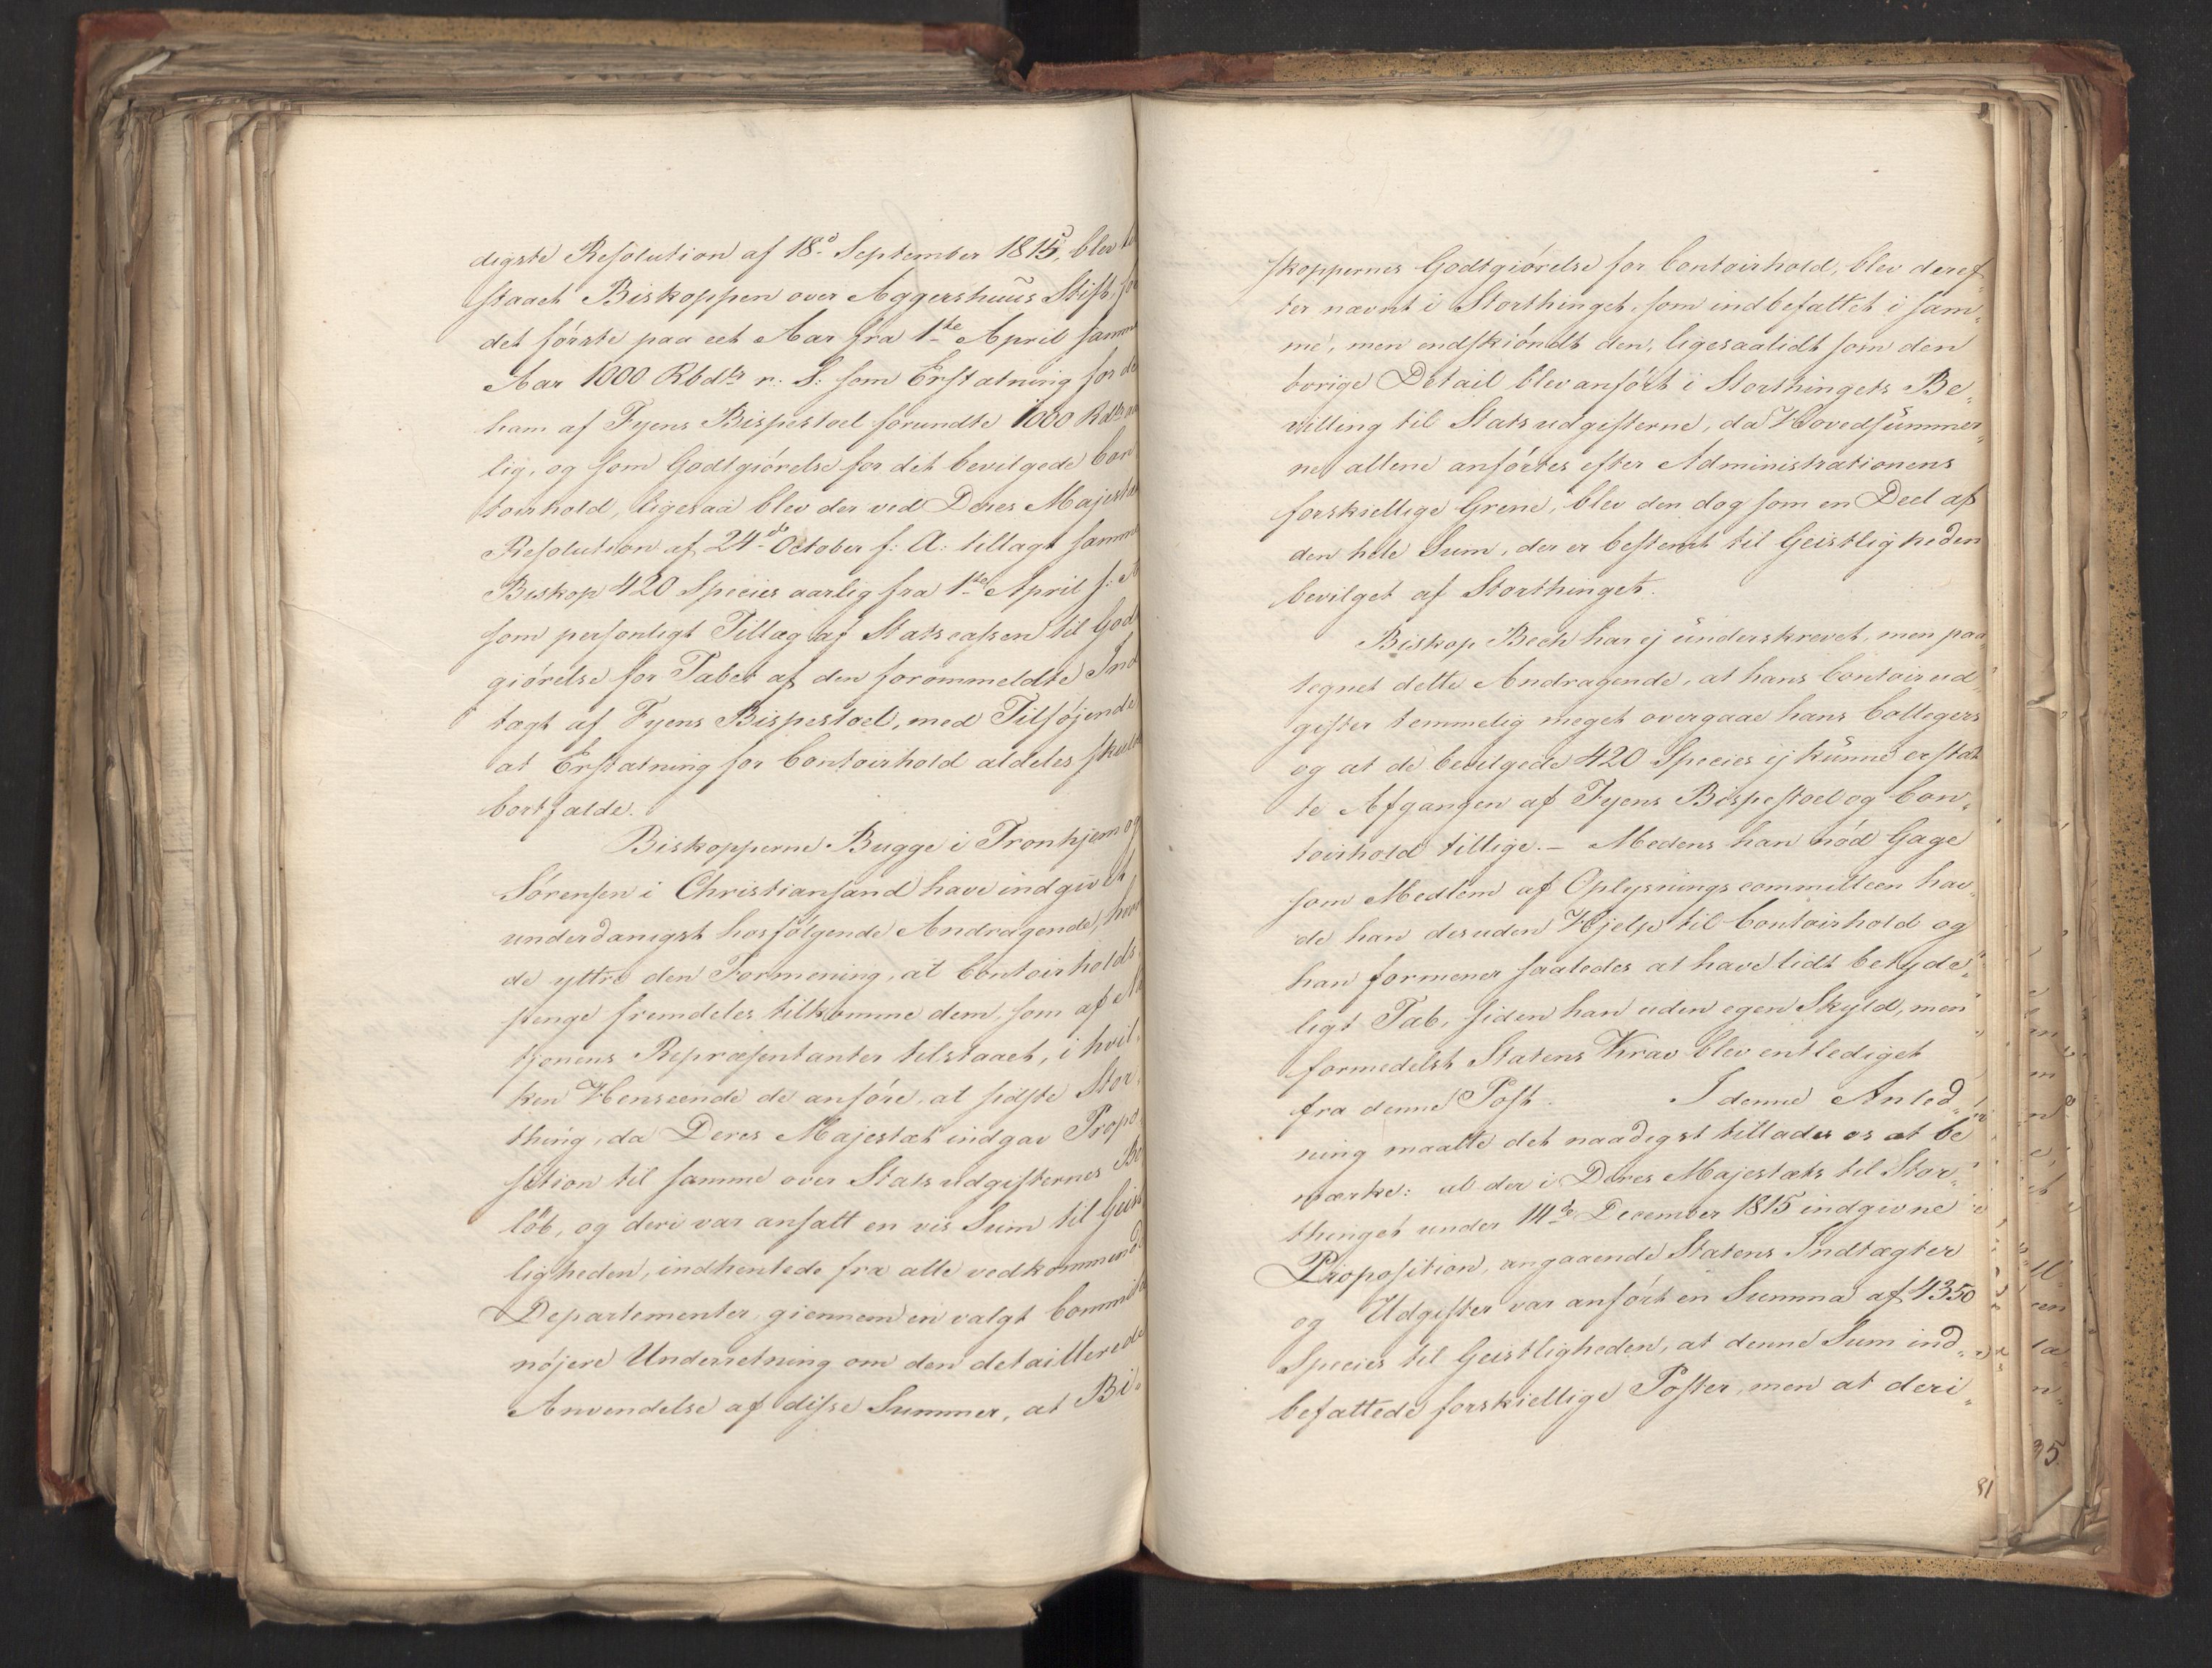 digste Resolution af 18d September 1815, blev til
staaet Biskoppen over Aggershuus Stift, for
det förste paa eet Aar fra 1ste April samme
Aar 1000 Rbdlr r: S: som Erstatning for de
ham af Fyens Bispestoel forundte 1000 Rdlr aar
lig, og som Godtgiörelse for det bevilgede Con
toirhold, ligesaa blev der ved Deres Majestæts
Resolution af 24de October s: A: tillagt samme
Biskop 420 Species aarlig fra 1ste April s: A
som personligt Tillæg af Statscassen til Godt
giörelse for Tabet af den forommeldte Ind
tægt af Fyens Bispestoel, med Tilföjende
at Erstatning for Contoirhold aldeles skulde
bortfalde.
Biskopperne Bugge i Tronhjem og
Sörensen i Christiansand have indgivet
underdanigst hosfölgende Andragende, hvor
de yttre den Formening, at Contoirholds
penge fremdeles tilkomme dem, som af Na
tjonens Repræsentanter tilstaaet, i hvil„
ken Henseende de anföre, at sidste Stor„
thing, da Deres Majestæt indgav Propo„
sition til samme over Statsudgifternes Be
löb, og deri var ansatt en vis Sum til Geist
ligheden, indhentede fra alle vedkommende
Departementer giennem en valgt Committe
nöjere Underretning om den detaillerede
Anvendelse af disse Summer, at Bi„
skoppernes Godtgiörelse for Contoirhold, blev deref„
ter nævnt i Storthinget, som indbefattet i sam„
me, men endskiöndt den, ligesaalidt som den
övrige Detail blev anfört i Storthingets Be„
villing til Statsudgifterne, da Hovedsummer„
ne allene anförtes efter Administrationens
forskiellige Grene, blev den dog som en Deel af
den hele Sum, der er bestemt til Geistligheden
bevilget af Storthinget.
Biskop Bech har ej underskrevet, men paa
tegnet dette Andragende, at hans Contoirud„
gifter temmelig meget overgaae hans Collegers
og at de bevilgede 420 Species ej kunne erstat
te Afgangen af Fyens Bispestoel og Con„
toirhold tillige. – Medens han nöd Gage
som Medlem af Oplysningscommitteen hav„
de han desuden Hjelp til Contoirhold og
han formener saaledes at have lidt betyde„
ligt Tab, siden han uden egen Skyld, men
formedelst Statens Krav blev entlediget
fra denne Post. I denne Anled„
ning maatte det naadigst tillades os at be
mærke: at der i Deres Majestæts til Stor„
thinget under 14de December 1815 indgivne
Proposition, angaaende Statens Indtægter
og Udgifter var anfört en Summa af 4350
Species til Geistligheden, at denne Sum ind„
befattede forskiellige Poster, men at deri„
81
35